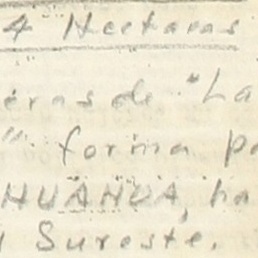 4 Hectaras
eras de "La
" forma pa
HUANCA, ha
Sureste.